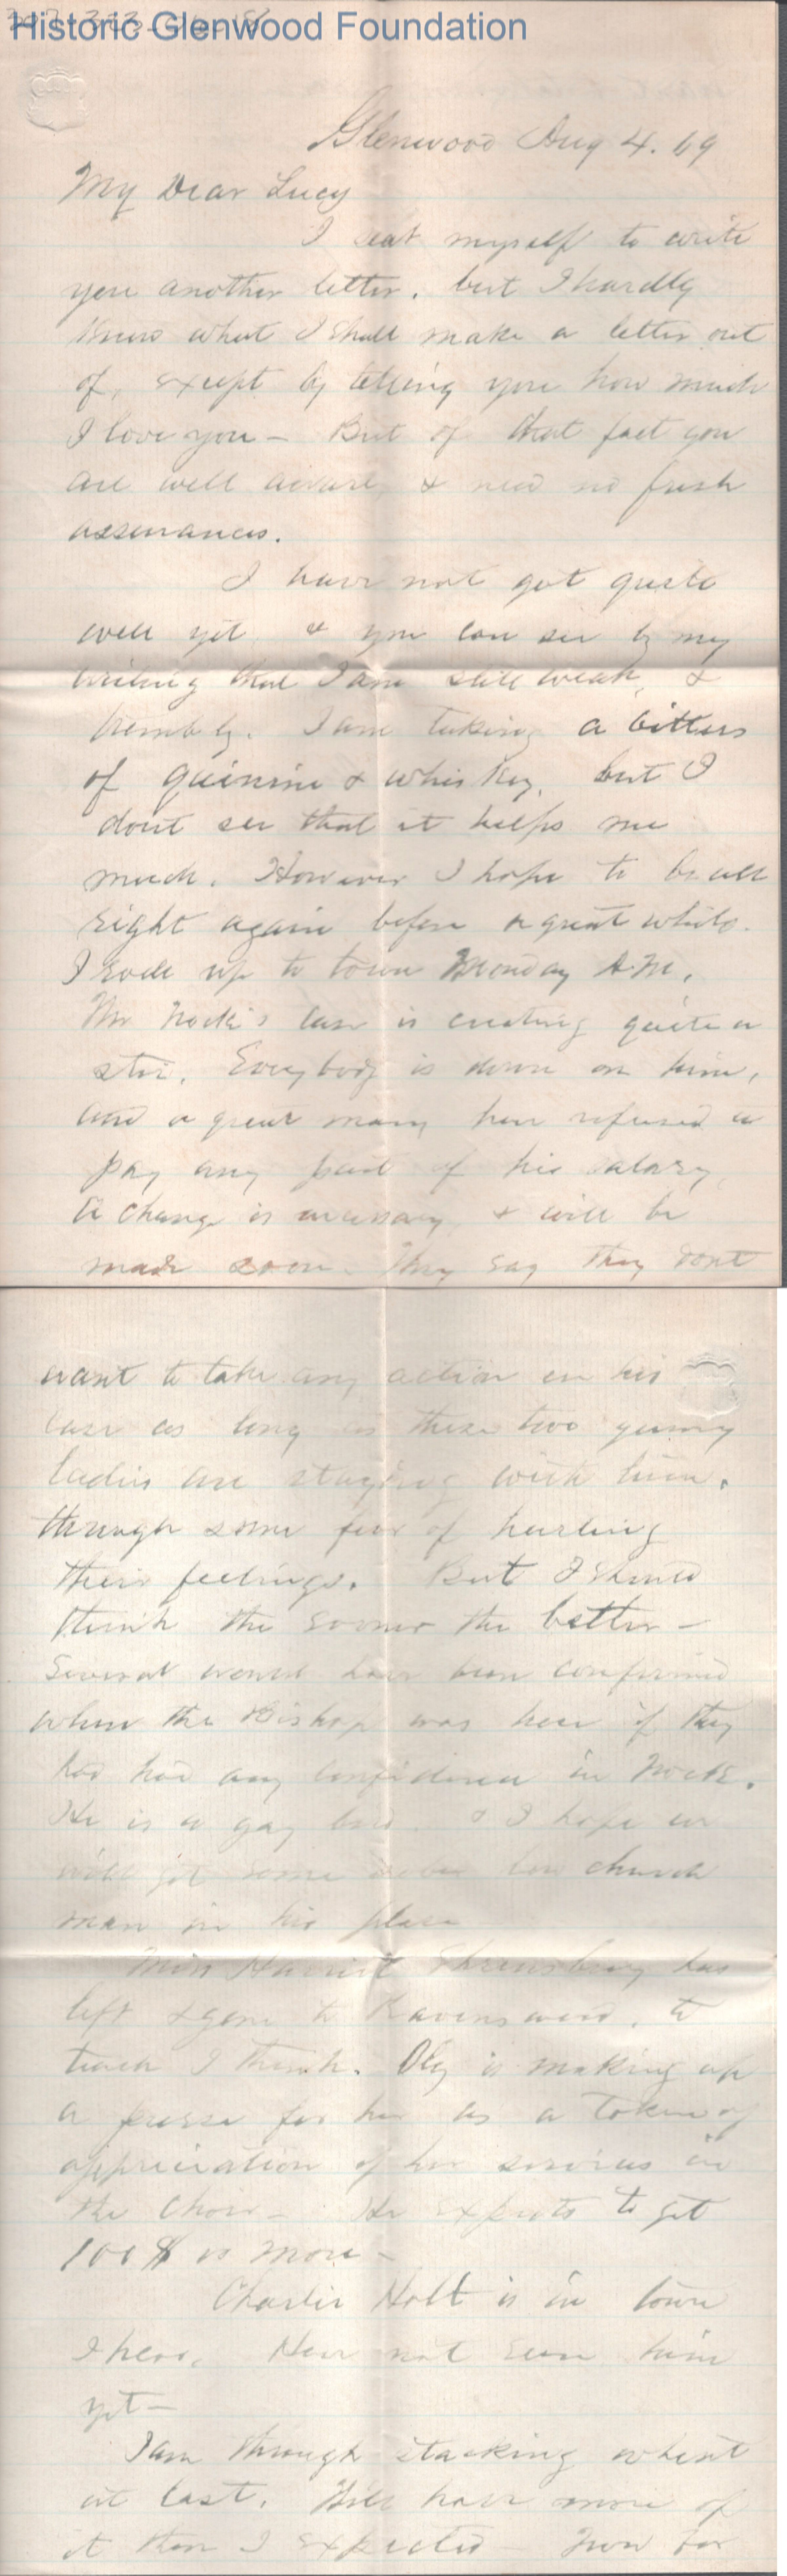 Historic Glenwood Foundation
Glenwood Aug 4. 69
My Dear Lucy
I seat myself to write
you another letter, but I hardly
know what I shall make a letter out
of, except by telling you how much
I love you - But of that fact you
are well aware, & need no fresh
assurances.
I have not got quite
well yet, & you can see by my
writing that I am still weak, &
trembly. I am taking a bitters
of quinine & whiskey, but I
dont see that it helps me
much. However I hope to be all
right again before a great while.
I rode up to town Monday A.M.
Mr Nock's case is creating quite a
stir. Everybody is down on him,
and a great many have refused to
pay any part of his salary,
A change is necessary, & will be
made soon. They say they dont
want to take any action in his
case as long as these two young
ladies are staying with him,
through some fear of hurting
their feelings. But I should
think the sooner the better -
Several would have been confirmed
when the Bishop was here if they
had had any confidence in Nock.
He is a gay bird & I hope we
will get some sober low church
man in his place
Miss Harriet Shrewsbury has
left & gone to Ravenswood, to
teach I think. Oley is making up
a purse for her as a token of
appreciation of her services in
the Choir - He expects to get
100$ or more -
Charlie Holt is in town
I hear. Have not seen him
yet -
I am through stacking wheat
at last. Will have more of
it than I expected